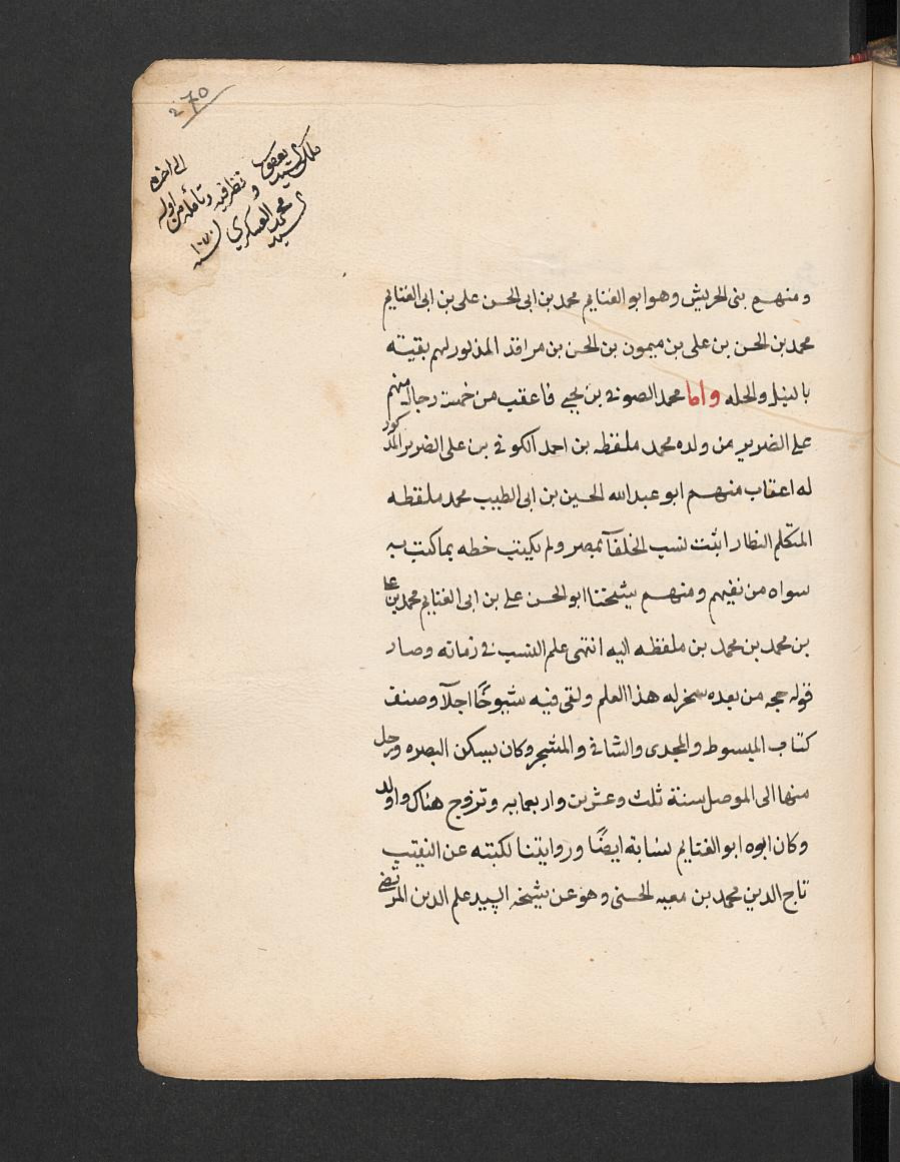 270
ملك السيد يعقوب
و نظر فيه وتأمله من اوله
الى اخره
السيد
محمد العسكري
سنة
ومنهم بنى الحريش وهو ابو الغنايم محمد بن ابى الحسن على بن ابى الغنايم
محمد بن الحسن بن على بن ميمون بن الحسن بن مراقد المذكور لهم بقيته
بالنيل والحله واما محمد الصوفى بن يحيى فاعقب من خمسة رجال منهم
على الضرير من ولده محمد ملقطه بن احمد الكوفى بن على الضرير المذكور
له اعقاب منهم ابو عبد الله الحسين بن ابى الطيب محمد ملقطه
المتكلم النظار اثبت نسب الخلفآ بمصر ولم يكتب خطه بما كتب به
سواه من نفيهم ومنهم شيخنا ابو الحسن على بن ابى الغنايم محمد بن على
بن محمد بن محمد بن ملقطه اليه انتهى علم النسب فى زمانه وصار
قوله حجه من بعده سخر له هذا العلم ولقى فيه شيوخًا اجلآ وصنف
كتاب المبسوط والمجدى والشافى والمشجر وكان يسكن البصره ورحل
منها الى الموصل سنة ثلث وعشرين واربعمايه وتزوج هناك واولد
وكان ابوه ابو الغنايم نسابة ايضًا وروايتنا لكتبه عن النقيب
تاج الدين محمد بن معيه الحسنى وهو عن شيخه السيد علم الدين المرتضى